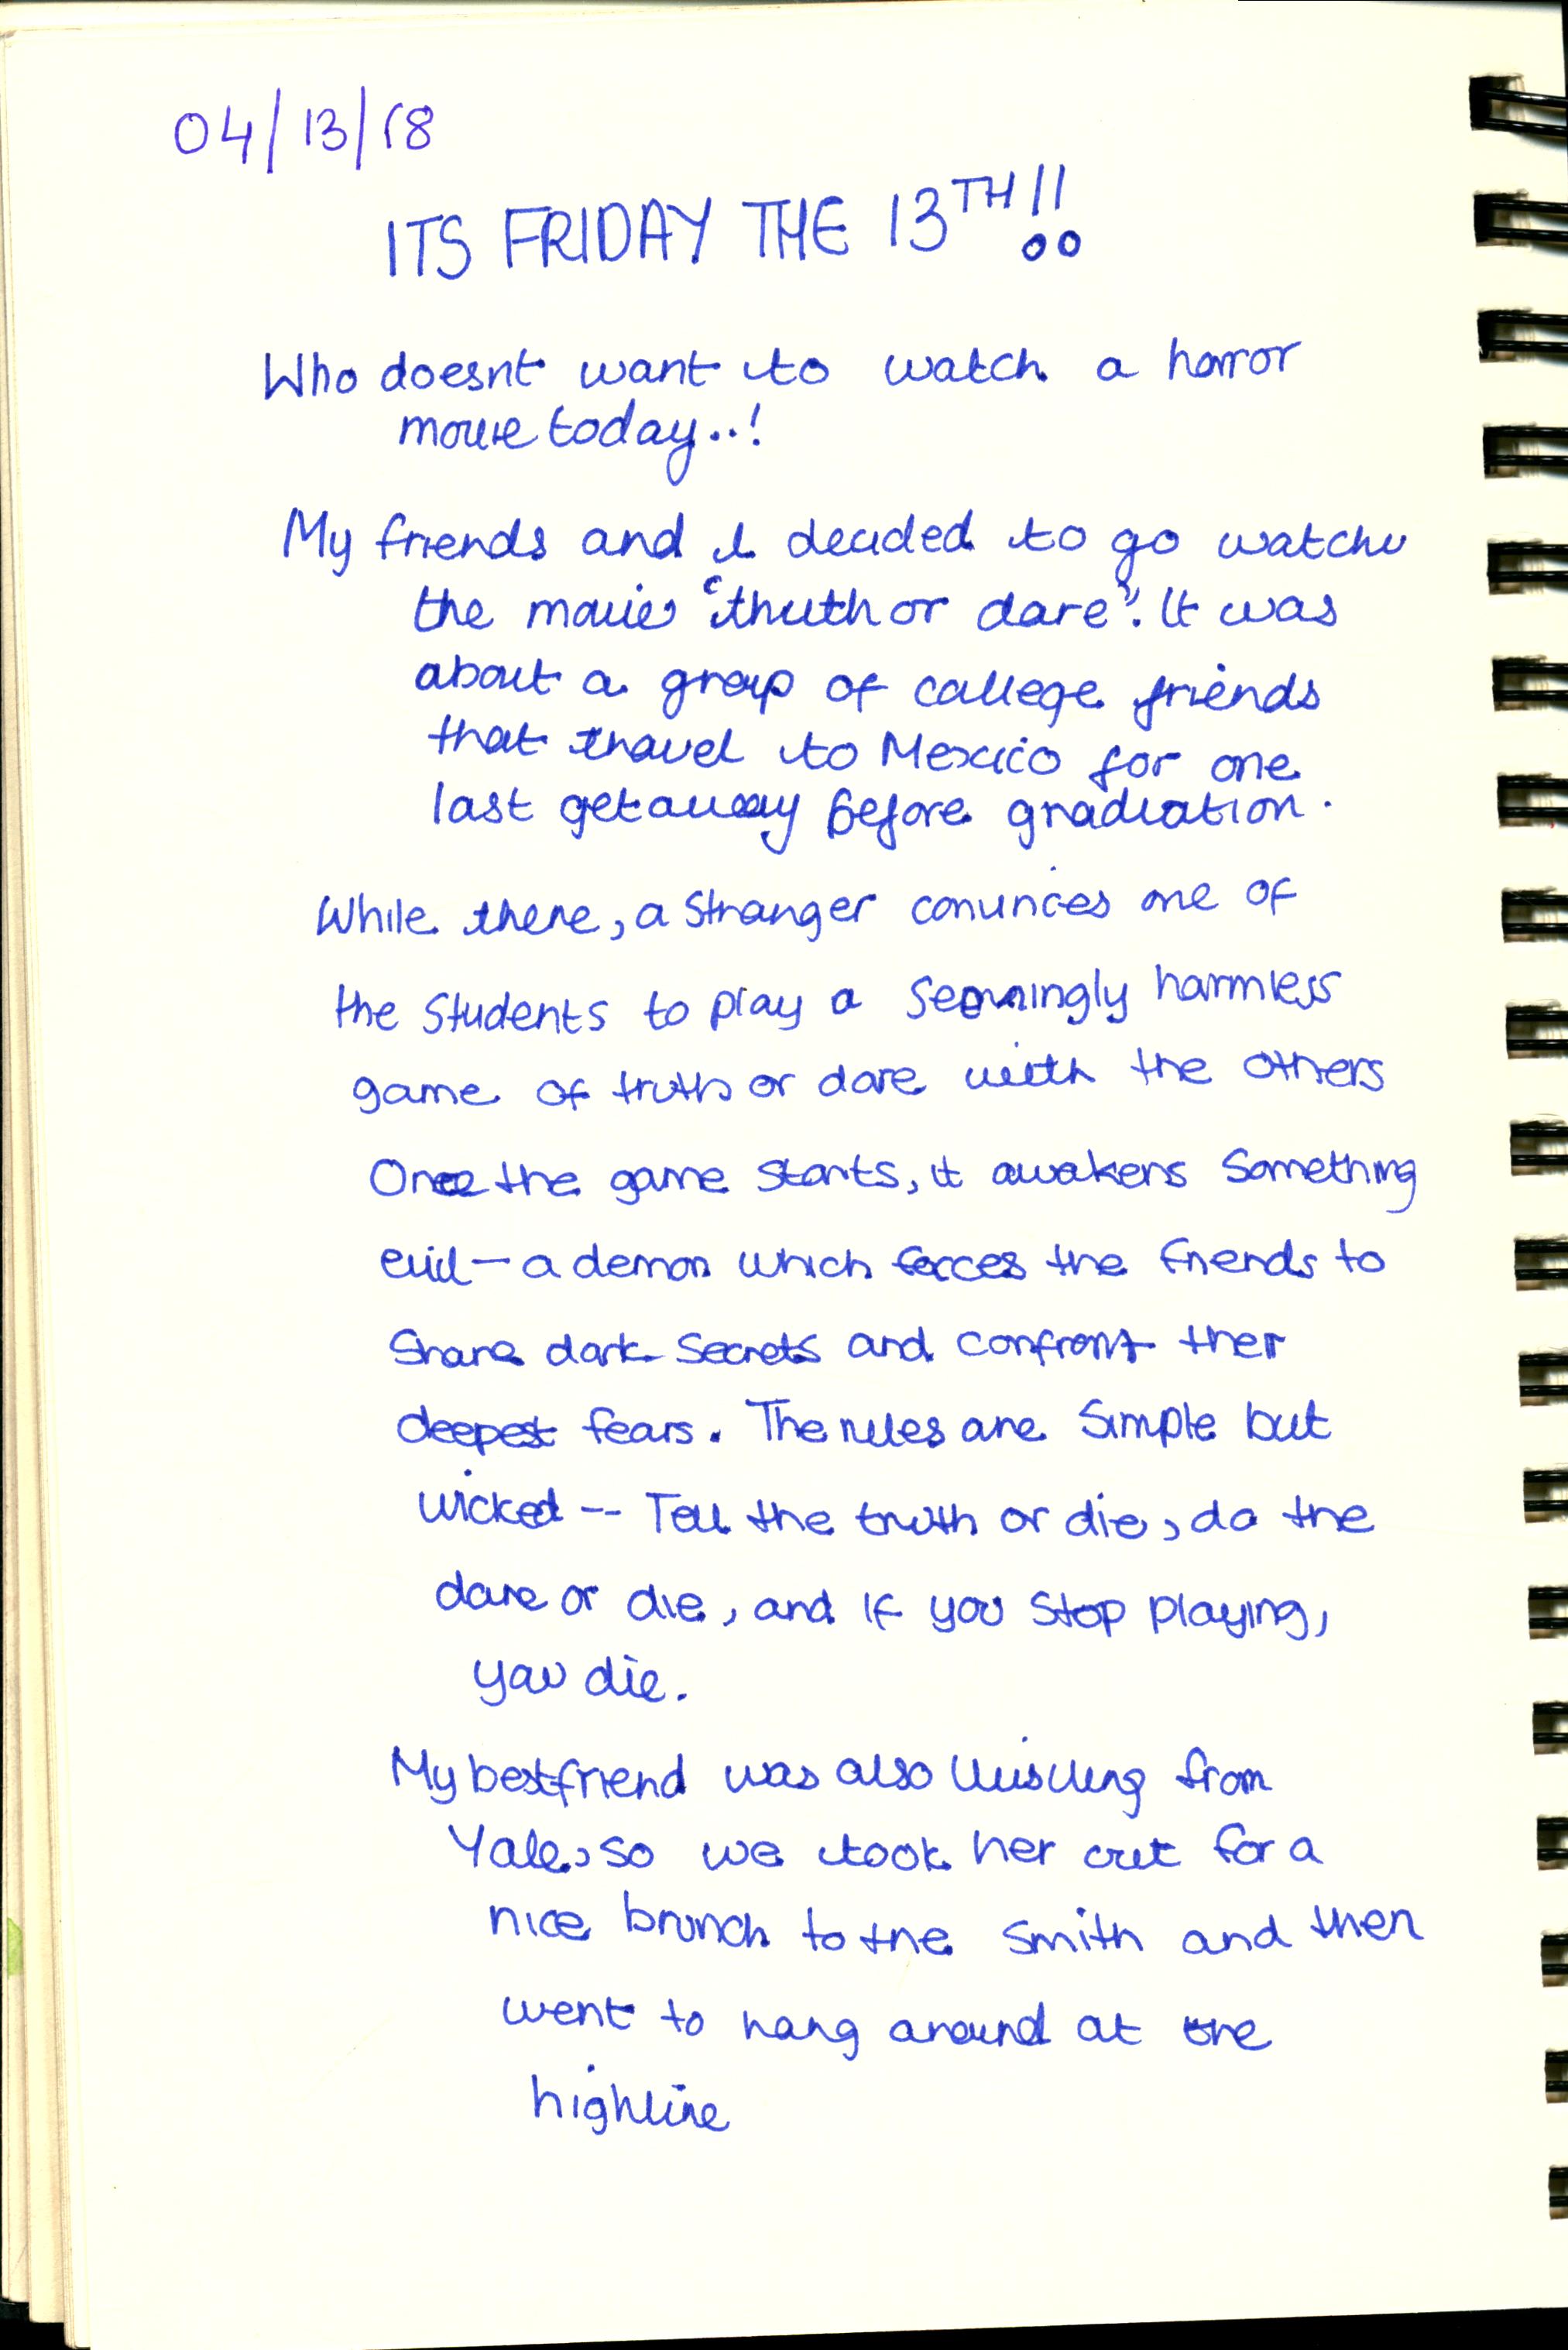 04/13/18
ITS FRIDAY THE 13TH!!
Who doesnt want to watch a horror
movie today..!
My friends and I decided to go watch
the movie "thuth or dare". It was
about a group of college friends
that travel to Mexico for one
last getaway before graduation.
While there, a stranger convinces one of
the students to play a seemingly harmless
game of truth or dare with the others
Once the game starts, it awakens something
evil - a demon which forces the friends to
share dark secrets and confront their
deepest fears. The rules are simple but
wicked -- Tell the truth or die, do the
dare or die, and if you stop playing,
you die.
My bestfriend was also visiting from
Yale, so we took her out for a
nice brunch to the smith and then
went to hang around at the
highline